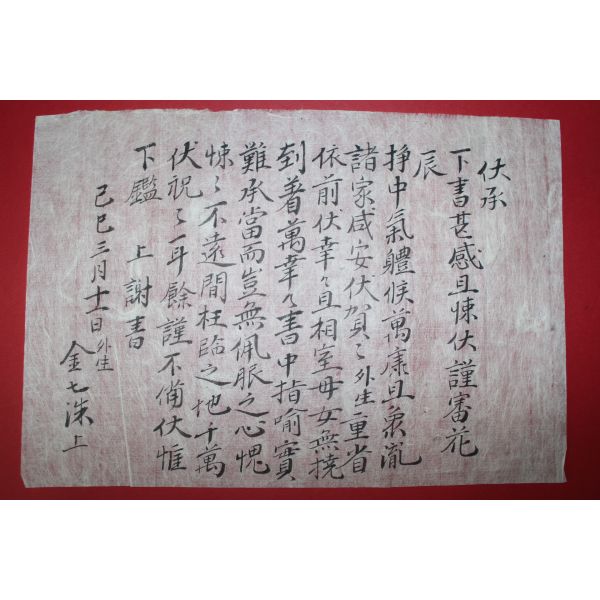 伏承
下書甚感且悚伏謹審花
辰
擀中氣軆候萬康且彙胤
諸家咸安伏賀〻外生重省
依前伏幸〻且相室母女無撓
到着萬幸〻書中指喻實
難承當而豈無佩服之心愧
悚〻不遠間枉臨之地千萬
伏祝〻耳餘謹不備伏惟
下鑑 上謝書
己巳三月十一日外生
金七洙上